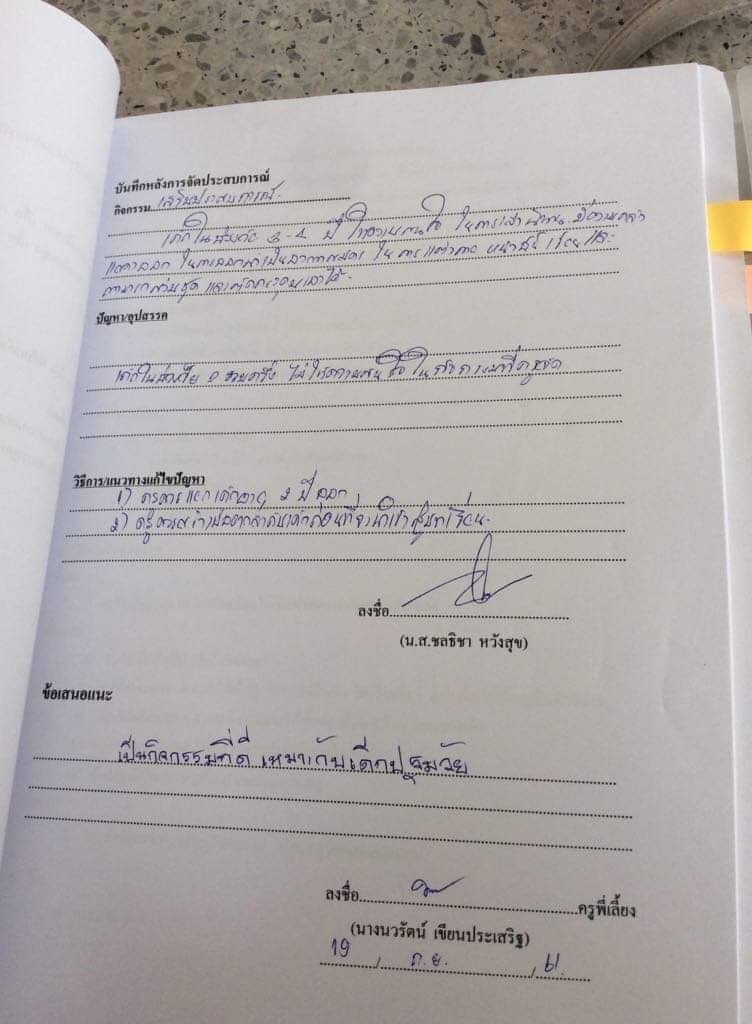 บันทึกหลังการจัดประสบการณ์
กิจกรรม เสริมประสบการณ์
เด็กในช่วงวัย 3-4 ปี ให้ความสนใจ ในการเล่านิทาน มีความกล้า
แสดงออก ในการ
ปัญหา/อุปสรรค
เด็กในช่วงวัย 2 ขวบครึ่ง ไม่ให้ความสนใจในกิจกรรมที่ครูจัด
วิธีการ/แนวทางแก้ไขปัญหา
1) ครูควรแยกเด็กอายุ 2 ปี ออก
2) ครูควร ก่อนที่จะให้เข้าสู่บทเรียน
ลงชื่อ
(น.ส.ชลธิชา หวังสุข)
ข้อเสนอแนะ
เป็นกิจกรรมที่ดี เหมาะกับเด็กปฐมวัย
ลงชื่อ ครูพี่เลี้ยง
(นางนวรัตน์ เขียนประเสริฐ)
19 / ก.ย. / 61